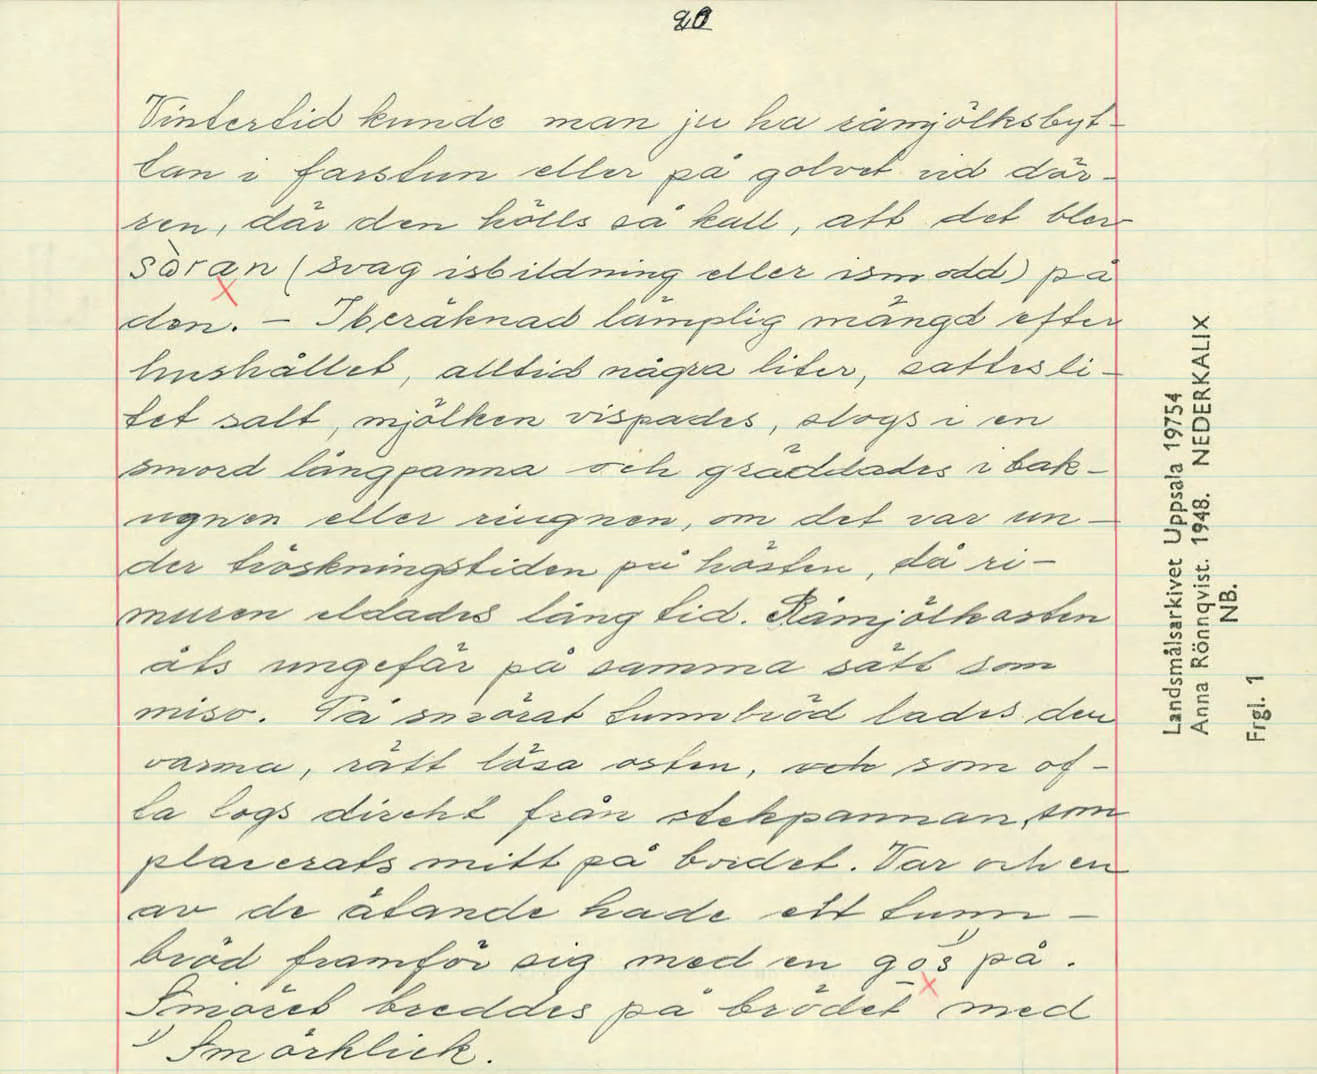 20
Vintertid kunde man ju ha råmjölksbyt-
tan i farstun eller på golvet vid dör-
ren, där den hölls så kall, att det blev
sòran (svag isbildning eller ismodd) på
den. - I beräknad lämplig mängd efter
hushållet, alltid några liter, sattes li-
tet salt, mjölken vispades, slogs i en
smord långpanna och gräddades i bak-
ugnen eller riugnen, om det var un-
der tröskningstiden på hösten, då ri-
muren eldades lång tid. Råmjölkosten
åts ungefär på samma sätt som
miso. På smörat tunnbröd lades den
varma, rätt lösa osten, som of-
ta togs direkt från stekpannan, som
placerats mitt på bordet. Var och en
av de ätande hade ett tunn-
bröd framför sig med en gos 1) på.
Smöret breddes på brödet med
1) Smörklick.
Landsmålsarkivet Uppsala 19754
Anna Rönnqvist. 1948. NEDERKALIX
NB.
Frgl. 1